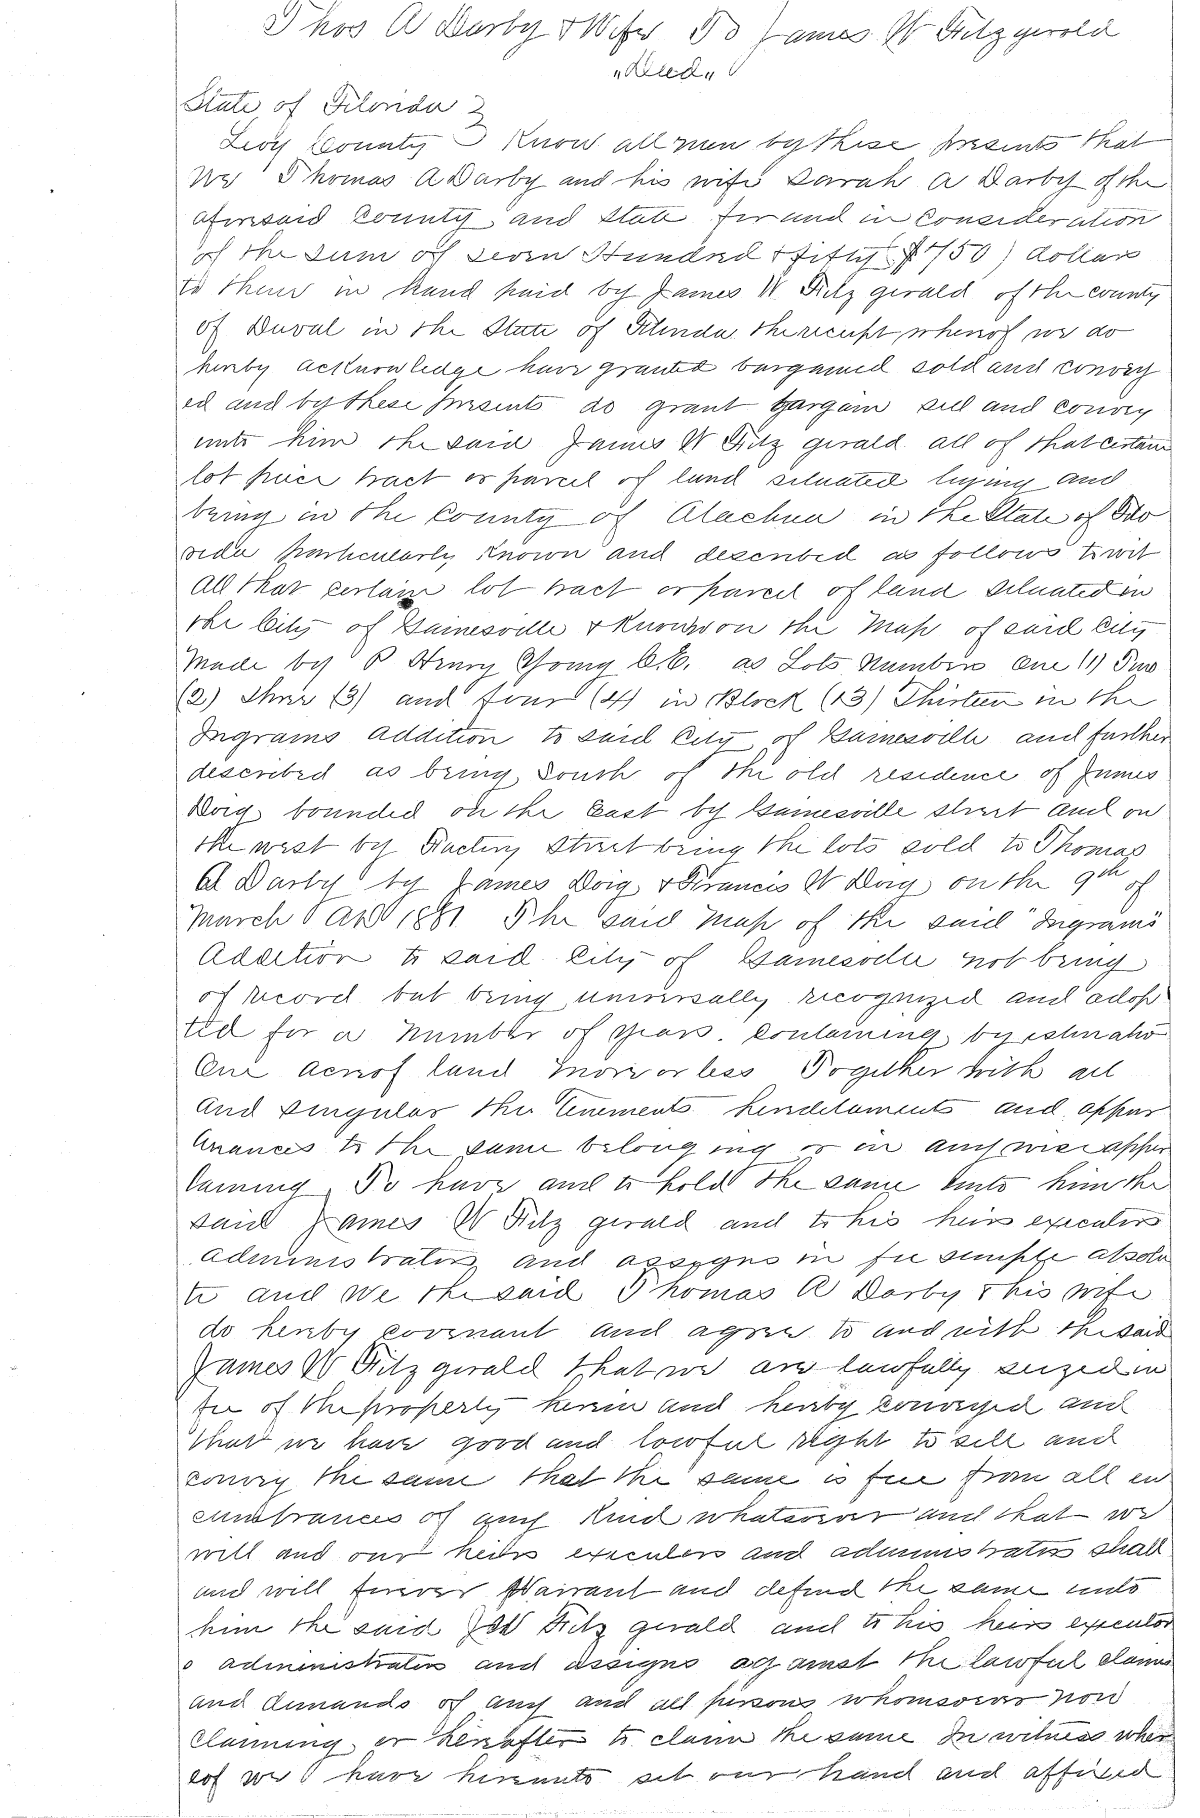 Thos A Darby & Wife To James W Fitzgerold
"Deed"
State of Florida }
Levy County } Know all men by these presents that
We Thomas A Darby and his wife Sarah A Darby of the
aforesaid County and State for and in consideration
of the sum of seven Hundred & fifty ($750) dollars
to them in hand paid by James W Fitz gerald of the county
of Duval in the State of Florida the receipt whereof we do
hereby acknowledge have granted bargained sold and convey
ed and by these presents do grant bargain sell and convey
unto him the said James W Fitz gerald all of that certain
lot piece tract or parcel of land situated lying and
being in the County of Alachua in the State of Flo
rida particularly known and described as follows to wit
All that certain lot tract or parcel of land situated in
the City of Gainesville & Known on the Map of said City
Made by P Henry Young C.E. as Lots Numbers One (1) Two
(2) Three (3) and four (4) in Block (13) Thirteen in the
Ingrams addition to said City of Gainesville and further
described as being South of the old residence of James
Doig bounded on the East by Gainesville street and on
the west by Factory Street being the lots sold to Thomas
A Darby by James Doig & Francis W Doig on the 9th of
March AD 1881 The said Map of the said "Ingrams"
Addition to said City of Gainesville not being
of record but being universally recognized and adop
ted for a number of years. Containing by estimatio
One acre of land more or less Together with all
And singular the tenements hereditaments and appur
tenances to the same belonging or in any wise apper
taining To have and to hold the same unto him the
said James W Fitz gerald and to his heirs executors
administrators and assigns in fee simple absolu
te and We the said Thomas A Darby & his wife
do hereby covenant and agree to and with the said
James W Fitz gerald that we are lawfully seized in
fee of the property herein and hereby conveyed and
that we have good and lawful right to sell and
convey the same that the same is free from all en
cumbrances of any kind whatsoever and that we
will and our heirs executors and administrators shall
and will forever Warrant and defend the same unto
him the said J W Fitz gerald and to his heirs executor
s administrators and assigns against the lawful claims
and demands of any and all persons whomsoever now
claiming or hereafter to claim the same In witness wher
eof we have hereunto set our hand and affixed